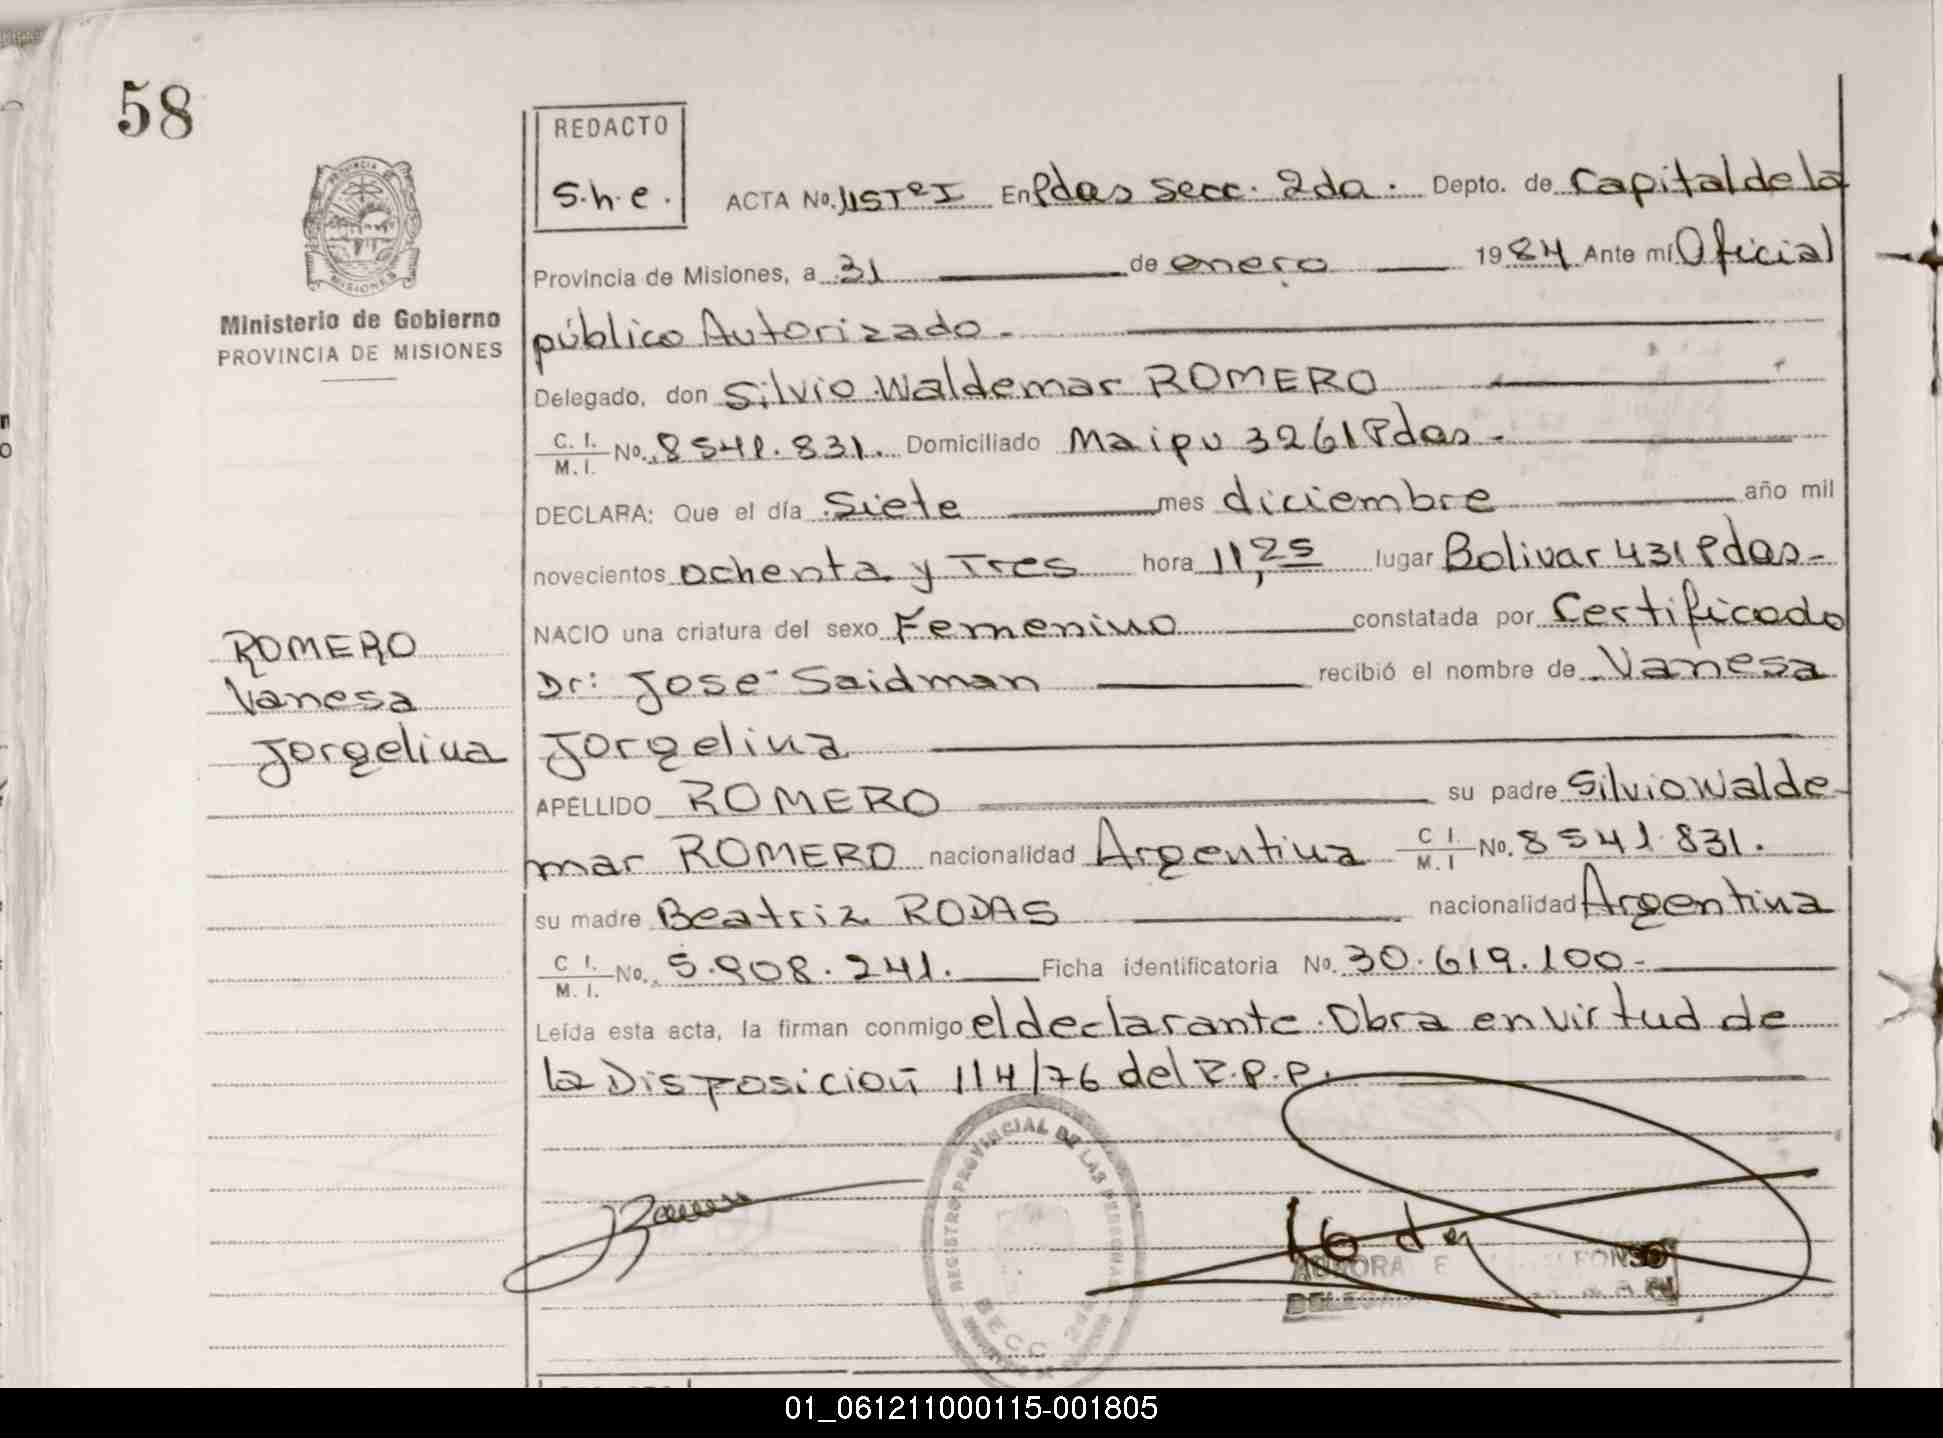 58
REDACTO
s.h.e.
ACTA No. 115Tº I En Pdas Secc. 2da. Depto. de Capital de la
Provincia de Misiones, a 31 de enero 1984 Ante mí Oficial
público Autorizado.
Delegado, don Silvio Waldemar ROMERO
C. I. M. I. No. 8541.831. Domiciliado Maipu 3261 Pdas.
DECLARA: Que el día Siete mes diciembre año mil
novecientos ochenta y Tres hora 11,25 lugar Bolivar 431 Pdas.
NACIO una criatura del sexo Femenino constatada por Certificado
Dr: Jose Saidman recibió el nombre de Vanesa
Jorgelina
APELLIDO ROMERO su padre Silvio Walde
mar ROMERO nacionalidad Argentina C I. M. I No. 8541.831.
su madre Beatriz RODAS nacionalidad Argentina
C I. M. I. No. 5.908.241. Ficha identificatoria No. 30.619.100-
Leída esta acta, la firman conmigo el declarante. Obra en virtud de
la Disposición 114/76 del R.P.P.
PROVINCIA DE
MISIONES
Ministerio de Gobierno
PROVINCIA DE MISIONES
ROMERO
Vanesa
Jorgelina
REGISTRO PROVINCIAL DE LAS PERSONAS
SECC. 2da
01_061211000115-001805